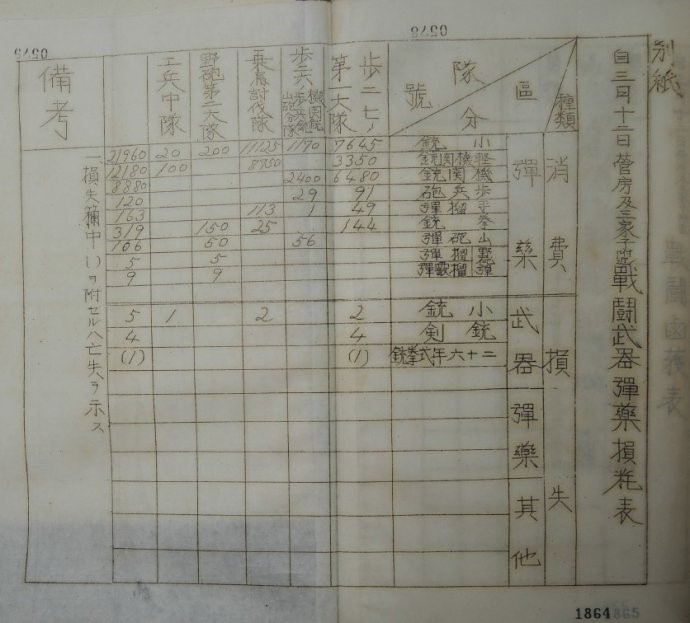 別紙
自三月十二日營房及三家子附近戰鬪武器彈藥損耗表
種類
區分
隊號
歩二七ノ第一大隊
野砲第二大隊
工兵中隊
備考
消費
彈藥
小銃 7645 1170 11125 200 20 21960
軽機関銃 3350 8950 100 12180
機関銃 6480 2400 8880
歩兵砲 91 29 120
手榴彈 49 1 113 163
拳銃 144 25 150 319
山砲彈 56 50 106
野榴彈 5 5
9 9
損失
武器
小銃 2 2 1 5
銃剣 4 4
二十六年式拳銃 (1) (1)
彈藥
其他
一、損失欄中( )ヲ附セルハ亡失ヲ示ス
0578
0579
1864
365